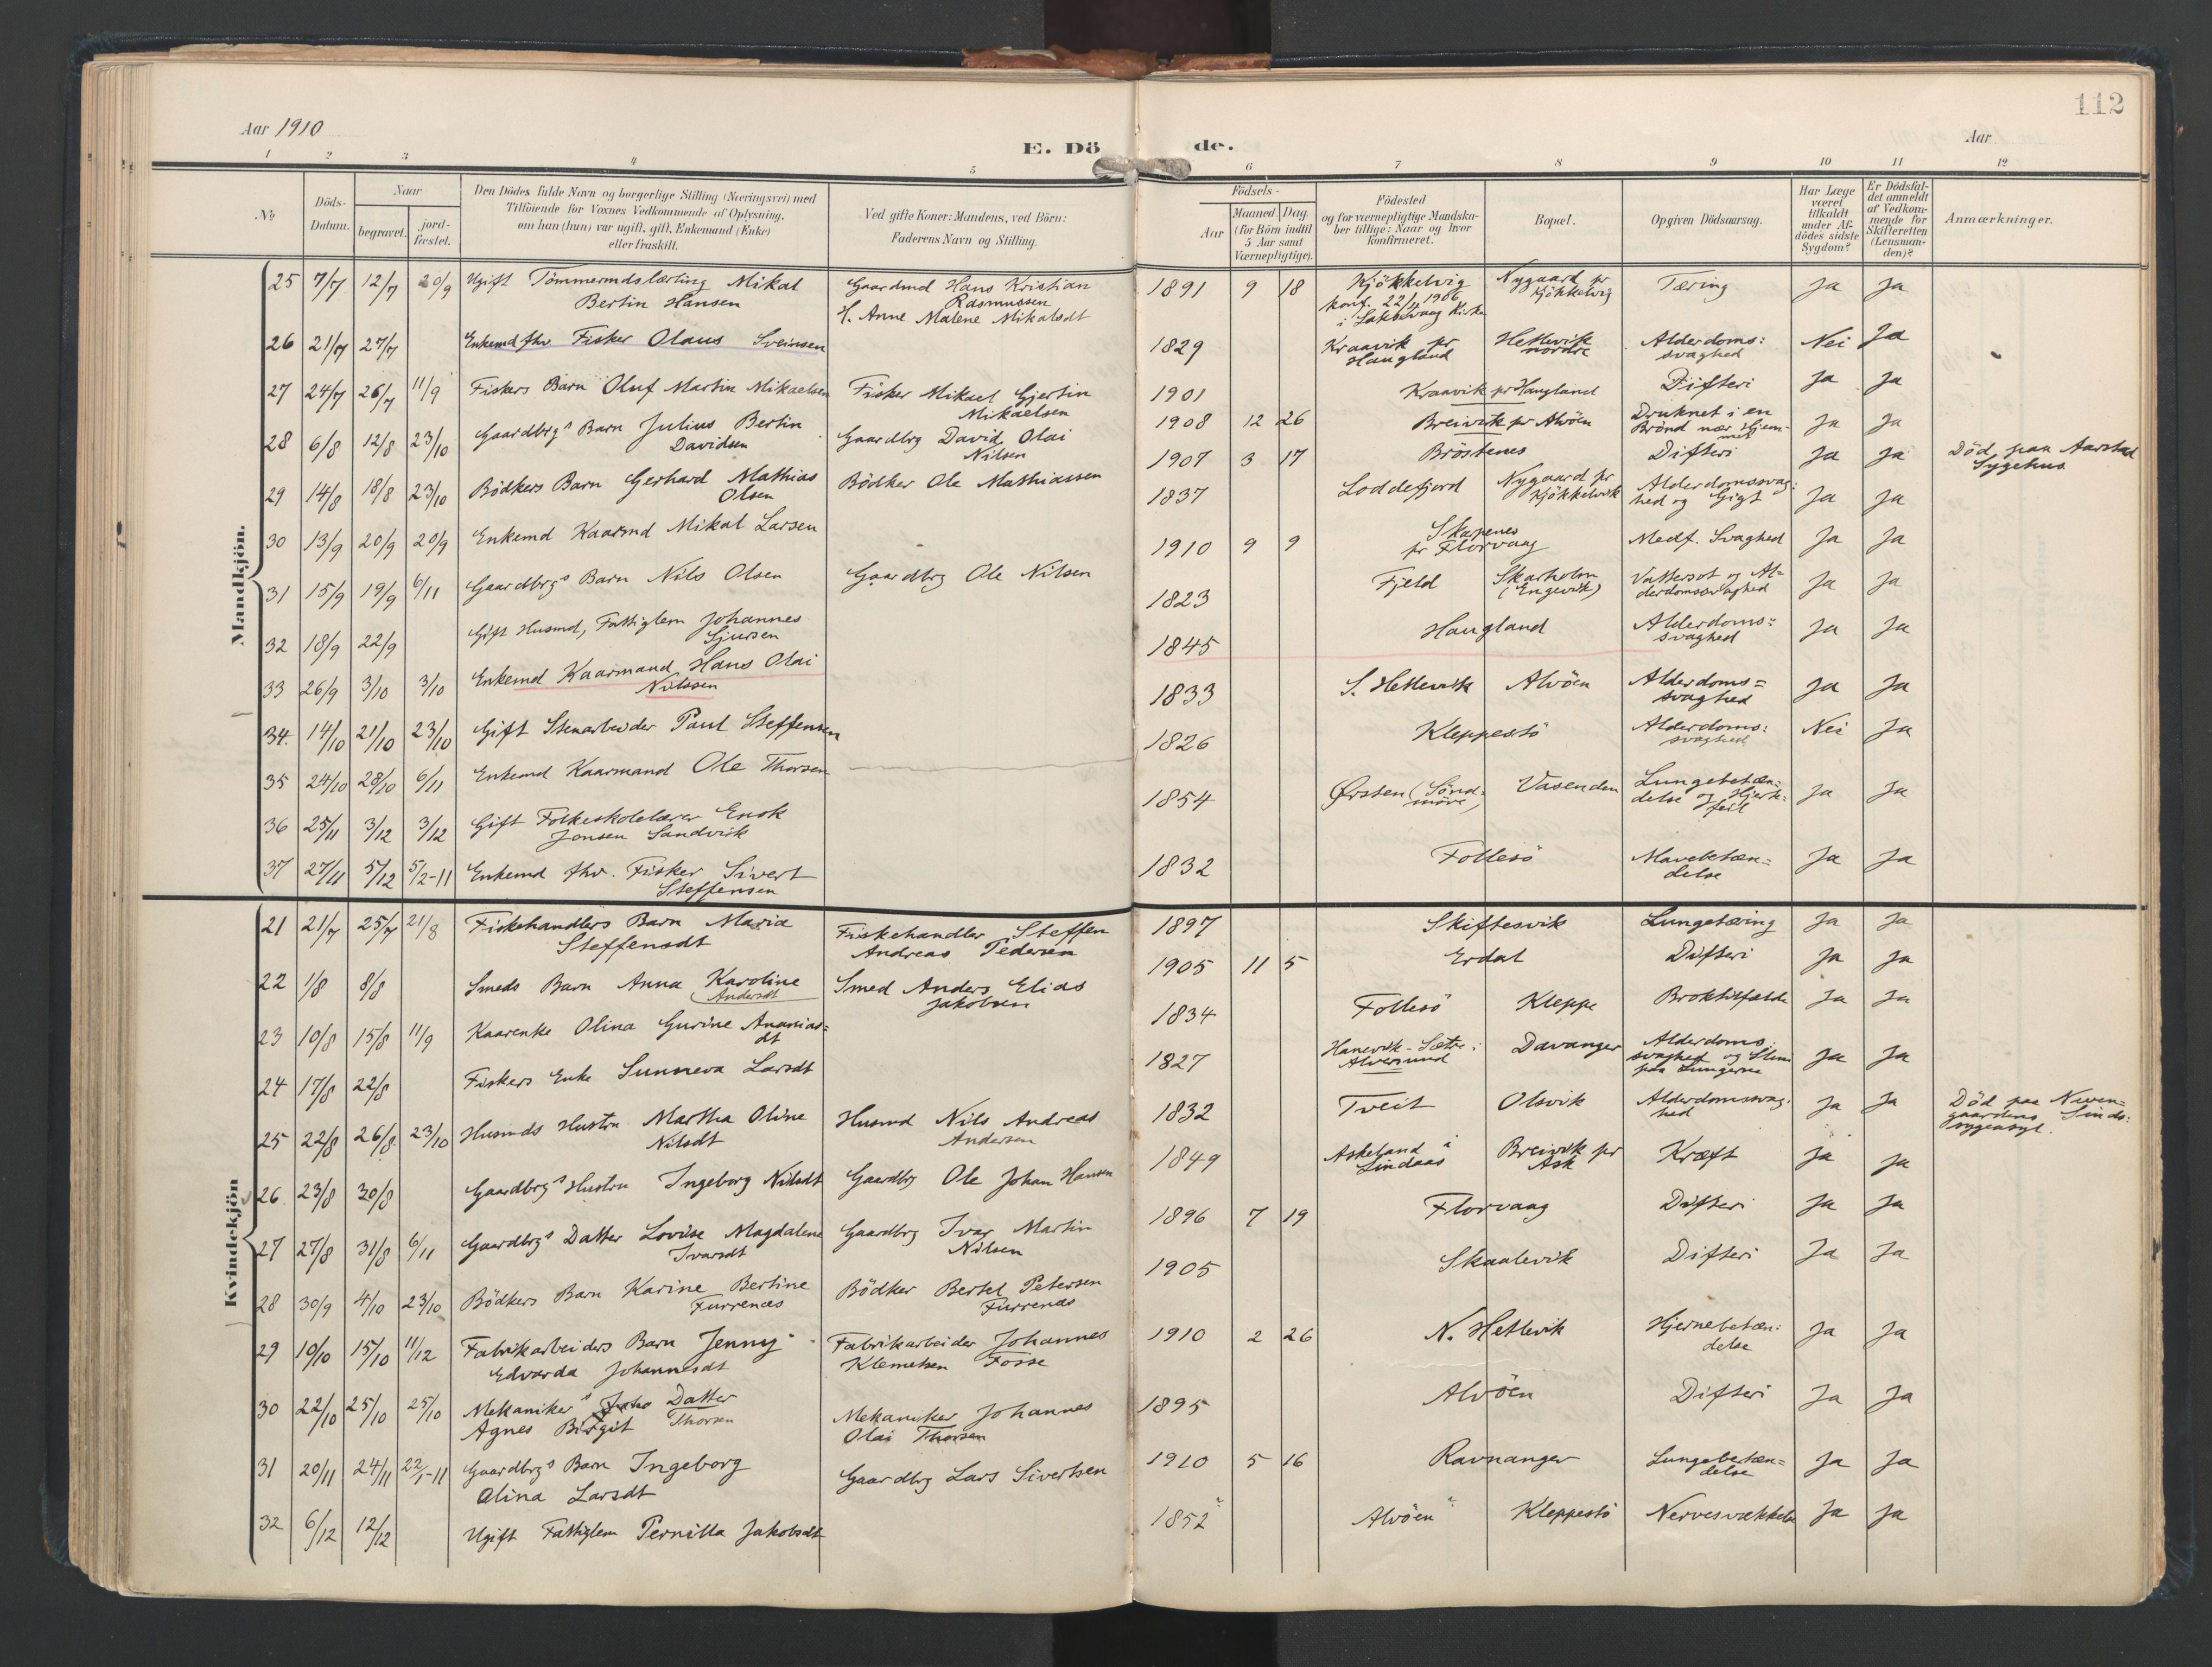 112
Aar 1910
Aar
E. Dö de.
1 2 3 4 5 6 7 8 9 10 11 12
No
Döds-
Datum.
Naar
begravet.
jord-
fæstet.
Den Dödes fulde Navn og borgerlige Stilling (Næringsvei) med
Tilföiende for Voxnes Vedkommende af Oplysning,
om han (hun) var ugift, gift, Enkemand (Enke)
eller fraskilt.
Ved gifte Koner: Mandens, ved Börn:
Faderens Navn og Stilling.
Födsels-
Aar
Maaned. Dag.
(for Börn indtil
5 Aar samt
Værnepligtige).
Födested
og for værnepligtige Mandska-
ber tillige: Naar og hvor
konfirmeret.
Bopæl.
Opgiven Dödsaarsag.
Har Læge
været
tilkaldt
under Af-
dödes sidste
Sygdom?
Er Dödsfal-
det anmeldt
af Vedkom-
mende for
Skifteretten
(Lensman-
den)?
Anmærkninger.
Mandkjön.
25 7/7 12/7 20/9 Ugift Tömmermdslærling Mikal
Bertin Hansen
Gaardmd Hans Kristian
Rasmussen
H. Anne Malene Mikalsdt
1891 9 18 Kjökkelvig
konf. 22/4 1906
i Laksevaag Kirke
Nygaard pr
Kjökkelvig
Tæring Ja Ja
26 21/7 27/7 Enkemd fhv. Fisker Olaus Sveinsen
1829 Kraavik pr
Haugland
Hetlevik
nordre
Alderdoms:
svaghed
Nei Ja
27 24/7 26/7 11/9 Fiskers Barn Oluf Martin Mikaelsen
Fisker Mikael Gjertin
Mikaelsen
1901 Kraavik pr Haugland Difteri Ja Ja
28 6/8 12/8 23/10 Gaardbrgs Barn Julius Bertin
Davidsen
Gaardbrg David Olai
Nilsen
1908 12 26 Breivik pr Alvöen
Druknet i en
Brönd nær Hjem-
met
Ja Ja
29 14/8 18/8 23/10 Bödkers Barn Gerhard Mathias
Olsen
Bödker Ole Mathiassen
1907 3 17 Bröstenes Difteri Ja Ja
Död paa Aarstad
Sygehus
30 13/9 20/9 20/9 Enkemd Kaarmd Mikal Larsen
1837 Loddefjord
Nygaard pr
Kjökkelvik
Alderdomssvag:
hed og Gigt
Ja Ja
31 15/9 19/9 6/11 Gaardbrgs Barn Nils Olsen
Gaardbrg Ole Nilsen
1910 9 9 Skapenes
pr Florvaag
Medf. Svaghed Ja Ja
32 18/9 22/9 Gift Husmd, Fattiglem Johannes
Sjursen
1823 Fjeld
Skarholm
(Engevik)
Vattersot og Al=
derdomssvaghed
Ja Ja
33 26/9 3/10 3/10 Enkemd Kaarmand Hans Olai
Nilssen
1845 Haugland
Alderdoms:
svaghed
Ja Ja
34. 14/10 21/10 23/10 Gift Stenarbeider Paul Steffensen
1833 S. Hetlevik Alvöen
Alderdoms=
svaghed
Ja Ja
35 24/10 28/10 6/11 Enkemd Kaarmand Ole Thorsen
1826 Kleppestö
Alderdoms:
svaghed
Nei Ja
36 25/11 3/12 3/12 Gift Folkeskolelærer Enok
Jonsen Sandvik
1854 Ørsten (Sönd=
möre)
Vasenden
Lungebetæn=
delse og Hjerte:
feil
Ja Ja
37 27/11 5/12 5/2-11 Enkemd fhv. Fisker Sivert
Steffensen
1832 Follesö
Mavebetæn=
delse
Ja Ja
Kvindekjön
21 21/7 25/7 21/8 Fiskehandlers Barn Maria
Steffensdt
Fiskehandler Steffen
Andreas Pedersen
1897 Skiftesvik Lungetæring Ja Ja
22 1/8 8/8 Smeds Barn Anna Karoline
Andersdt
Smed Anders Elias
Jakobsen
1905 11 5 Erdal Difteri Ja Ja
23 10/8 15/8 11/9 Kaarenke Olina Gurine Ananias=
dt
1834 Follesö Kleppe Broktilfælde Ja Ja
24 17/8 22/8 Fiskers Enke Sunneva Larsdt
1827 Hanevik-Sætre i
Alversund
Davanger
Alderdoms
svaghed og Slim
paa Lungerne
Ja Ja
25 22/8 26/8 23/10 Husmds Hustru Martha Oline
Nilsdt
Husmd Nils Andreas
Andersen
1832 Tveit Olsvik
Alderdomssvag:
hed
Ja Ja
Död paa Neven=
gaardens Sinds:
sygeasyl.
26. 23/8 30/8 Gaardbrgs Hustru Ingeborg Nilsdt
Gaardbrg Ole Johan Hansen
1849 Askeland i
Lindaas
Breivik pr
Ask
Kræft Ja Ja
27 27/8 31/8 6/11 Gaardbrgs Datter Lovise Magdalene
Ivarsdt
Gaardbrg Ivar Martin
Nilsen
1896 7 19 Florvaag Difteri Ja Ja
28 30/9 4/10 23/10 Bödkers Barn Karine Bertine
Furrenes
Bödker Bertel Petersen
Furrenes
1905 Skaalevik Difteri Ja Ja
29 10/10 15/10 11/12 Fabrikarbeiders Barn Jenny
Edvarda Johannesdt
Fabrikarbeider Johannes
Klemetsen Fosse
1910 2 26 N. Hetlevik
Hjernebetæn:
delse
Ja Ja
30 22/10 25/10 25/10 Mekanikers Datter
Agnes Birgit Thorsen
Mekaniker Johannes
Olai Thorsen
1895 Alvöen Difteri Ja Ja
31 20/11 24/11 22/1-11 Gaardbrgs Barn Ingeborg
Olina Larsdt
Gaardbrg Lars Sivertsen
1910 5 16 Ravnanger
Lungebetæn=
delse
Ja Ja
32 6/12 12/12 Ugift Fattiglem Pernilla Jakobsdt
1852 Alvöen Kleppestö Nervesvækkelse Ja Ja